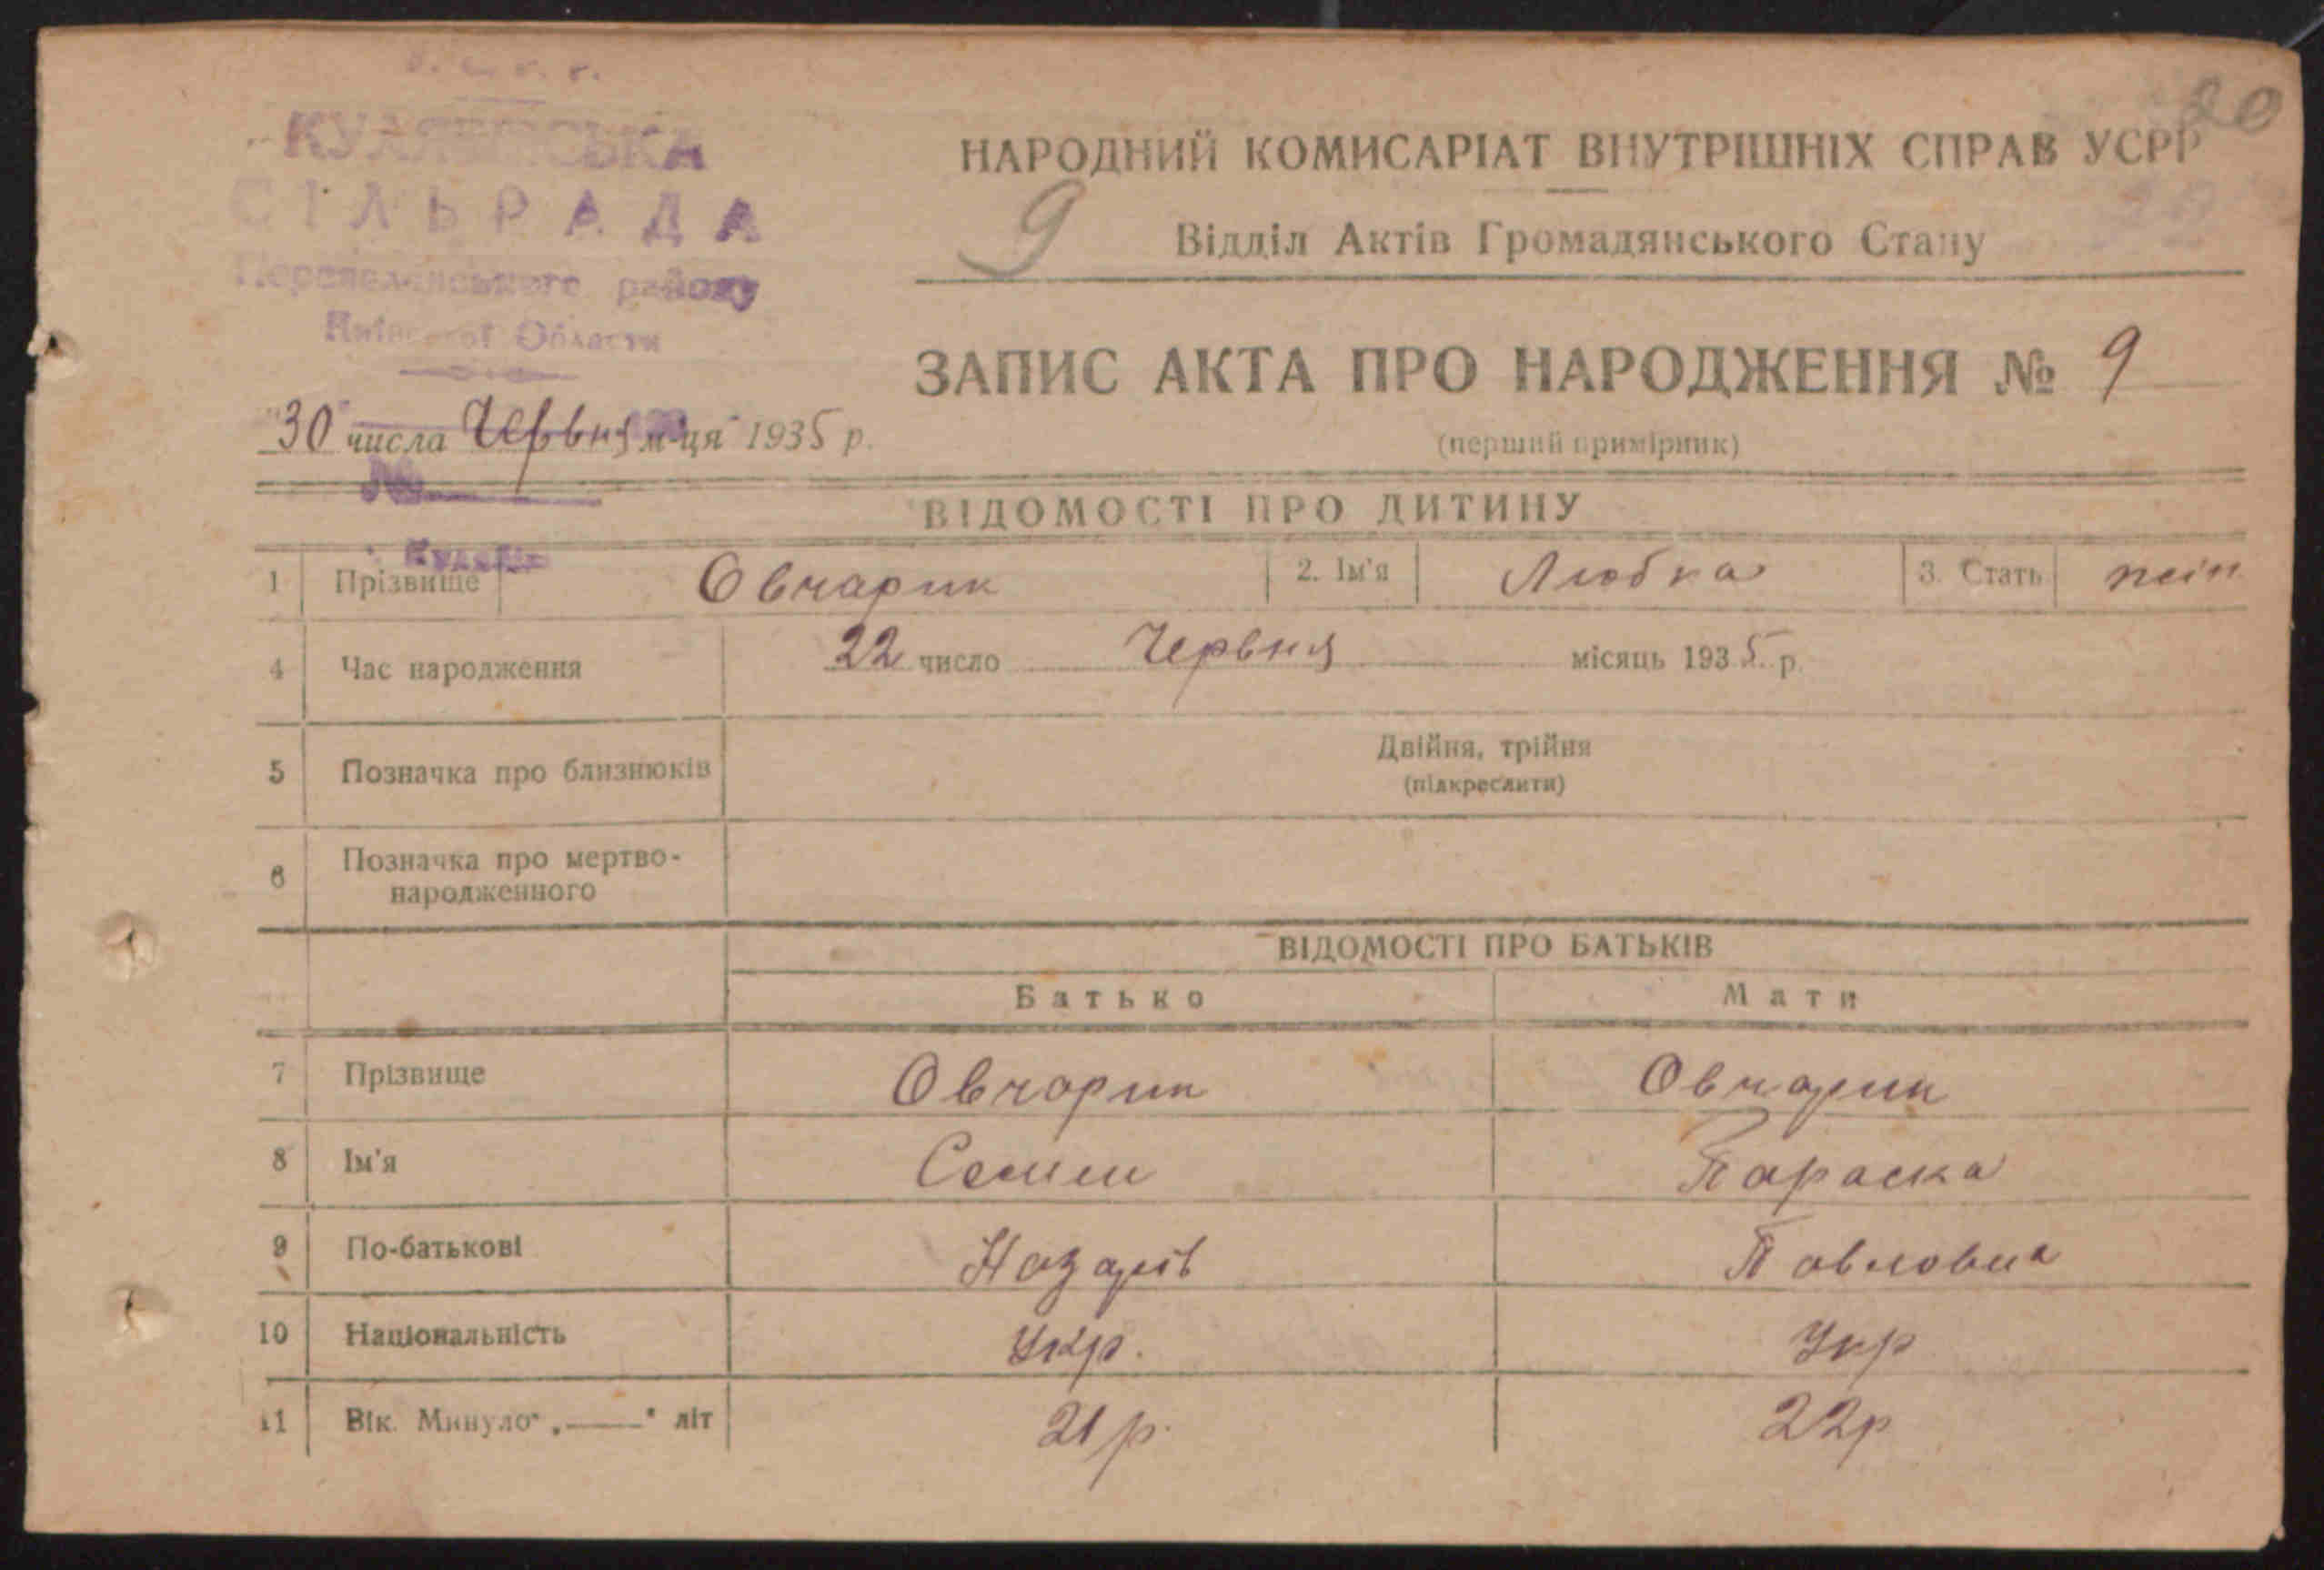 20
СІЛЬРАДА
району
Області
НАРОДНИЙ КОМИСАРІАТ ВНУТРІШНІХ СПРАВ УСРР
9
Відділ Актів Громадянського Стану
ЗАПИС АКТА ПРО НАРОДЖЕННЯ № 9
(перший примірник)
"30" числа Червня м-ця 1935 р.
№
ВІДОМОСТІ ПРО ДИТИНУ
1 Прізвище Овчарик 2. Ім'я Любка 3. Стать жін
4 Час народження 22 число Червня місяць 1935 р.
5 Позначка про близнюків Двійня, трійня
(підкреслити)
6 Позначка про мертво-
народженного
ВІДОМОСТІ ПРО БАТЬКІВ
Батько Мати
7 Прізвище Овчарик Овчарик
8 Ім'я Семен Параска
9 По-батькові Назарів Павловна
10 Національність Укр. Укр
11 Вік. Минуло „—" літ 21 р. 22 р